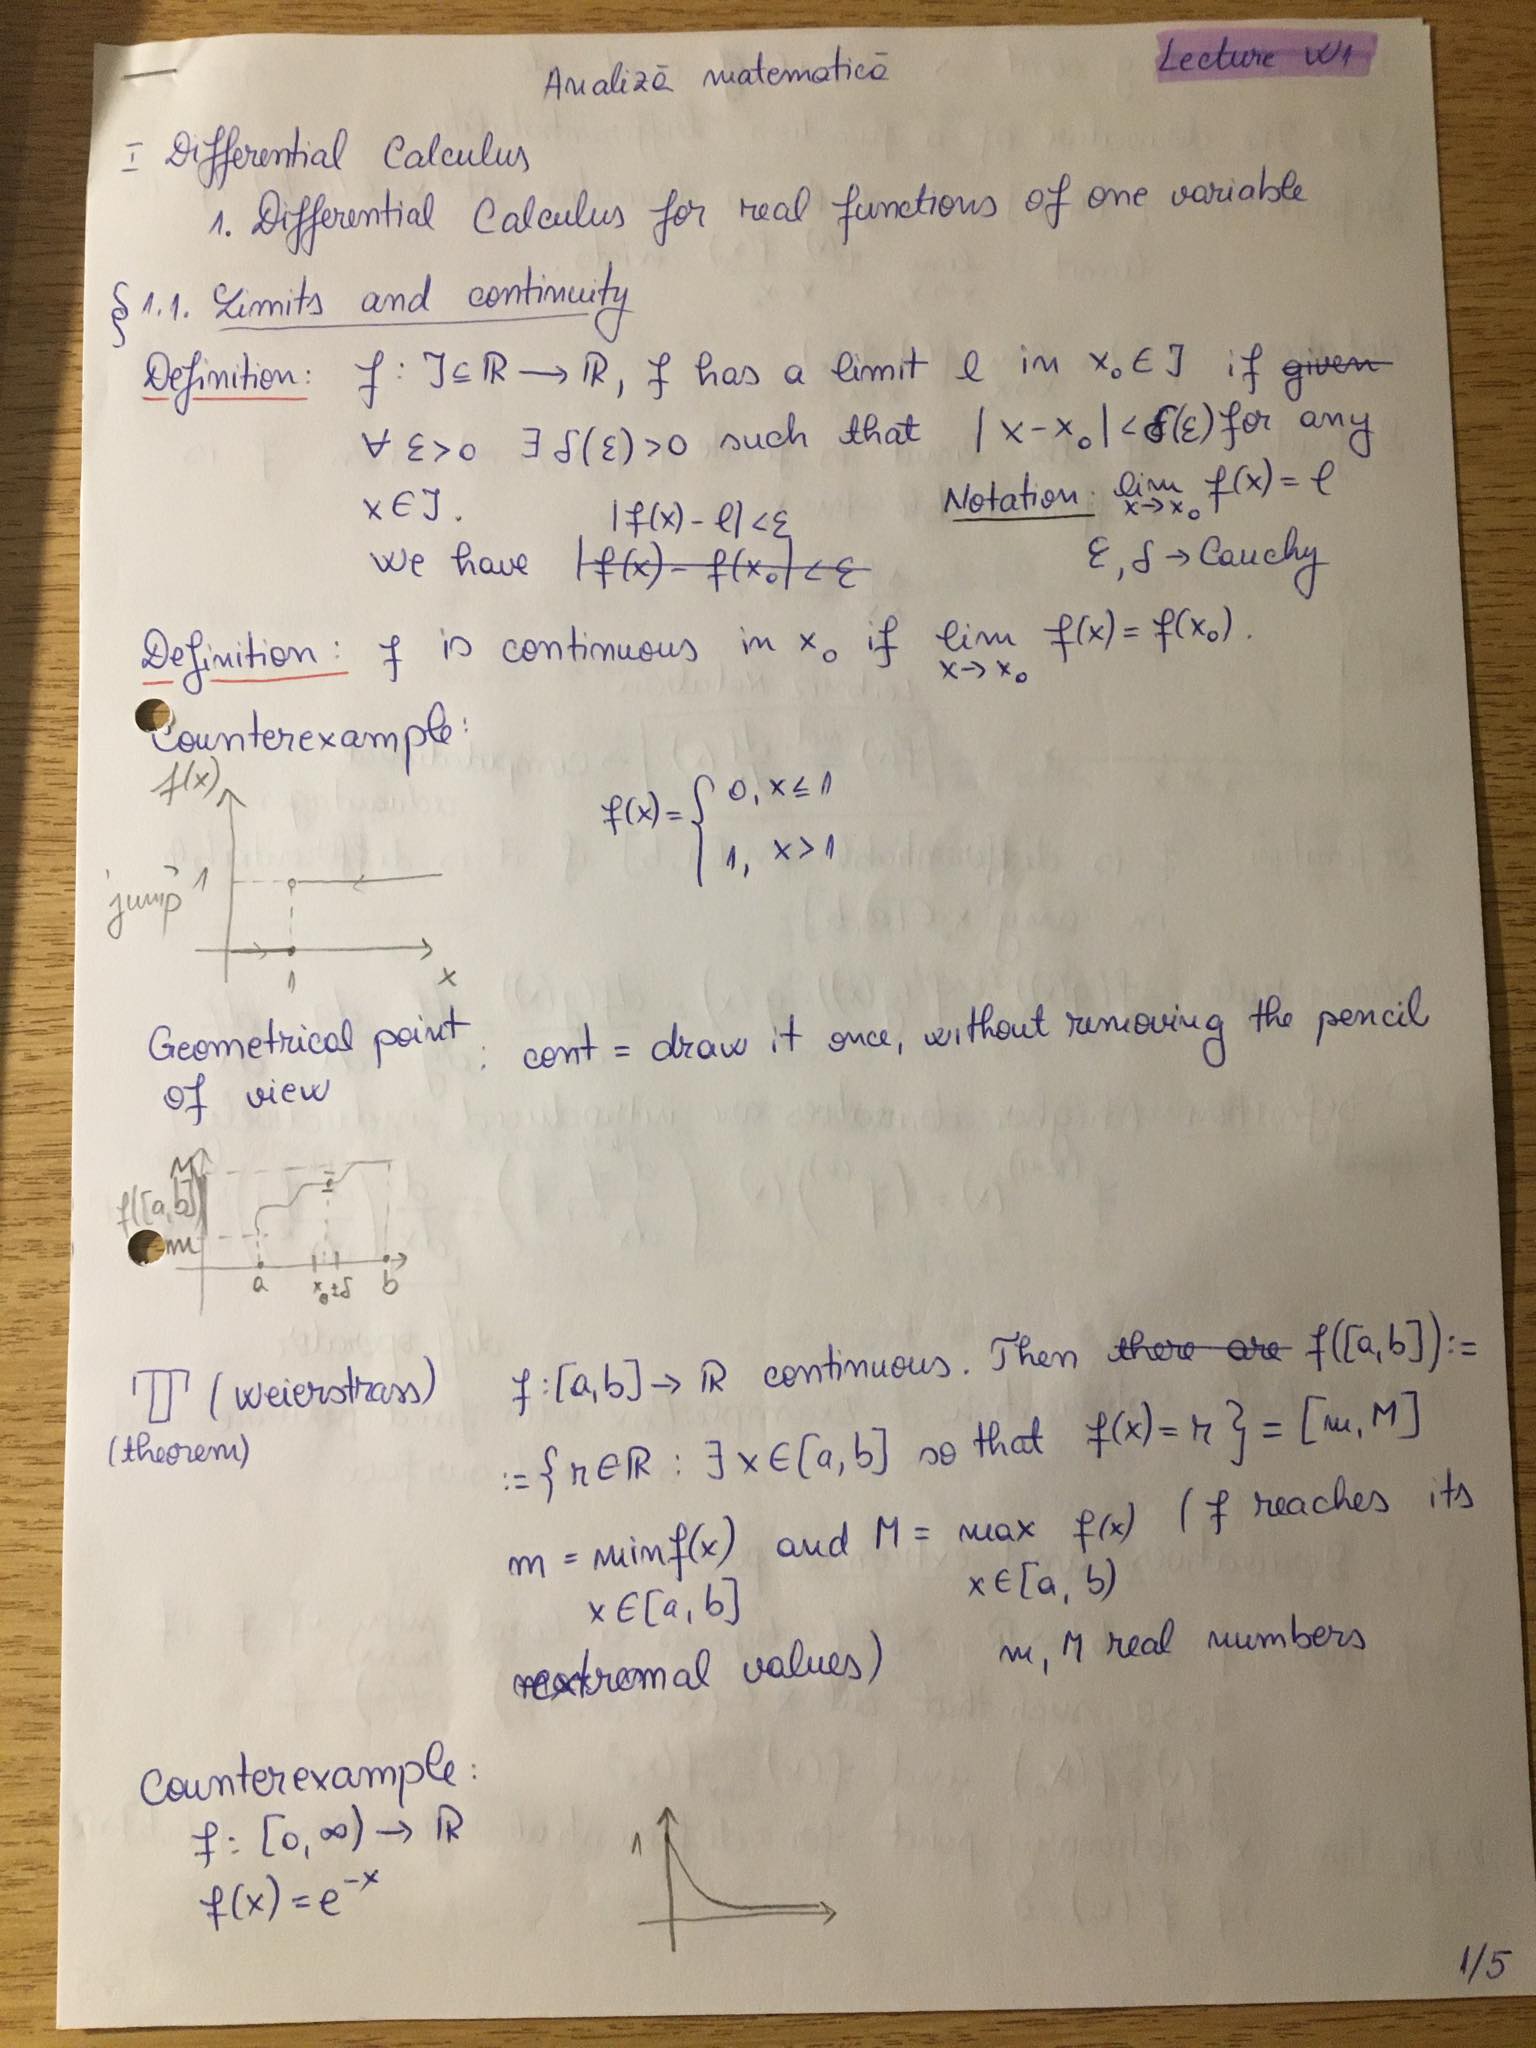 Analiză matematică
Lecture W1
I Differential Calculus
1. Differential Calculus for real functions of one variable
§ 1.1. Limits and continuity
Definition: f : J ⊆ ℝ → ℝ, f has a limit l in x₀ ∈ J if ~~given~~
∀ ε > 0 ∃ δ(ε) > 0 such that |x - x₀| < δ(ε) for any
x ∈ J.
Notation: lim x→x₀ f(x) = l
|f(x) - l| < ε
We have ~~|f(x) - f(x₀)| < ε~~
ε, δ → Cauchy
Definition: f is continuous in x₀ if lim x→x₀ f(x) = f(x₀).
Counterexample:
f(x)
"jump" 1
1
x
f(x) = { 0, x ≤ 1
1, x > 1
Geometrical point of view : cont = draw it once, without removing the pencil
M
f([a,b])
m
a x₀ ± δ b
T (Weierstrass) f : [a,b] → ℝ continuous. Then ~~there are~~ f([a,b]) :=
(theorem)
:= { r ∈ ℝ : ∃ x ∈ [a,b] so that f(x) = r } = [m, M]
m = min f(x) and M = max f(x) (f reaches its
x ∈ [a, b] x ∈ [a, b)
extremal values) m, M real numbers
Counterexample:
f : [0, ∞) → ℝ
f(x) = e⁻ˣ
1
1/5